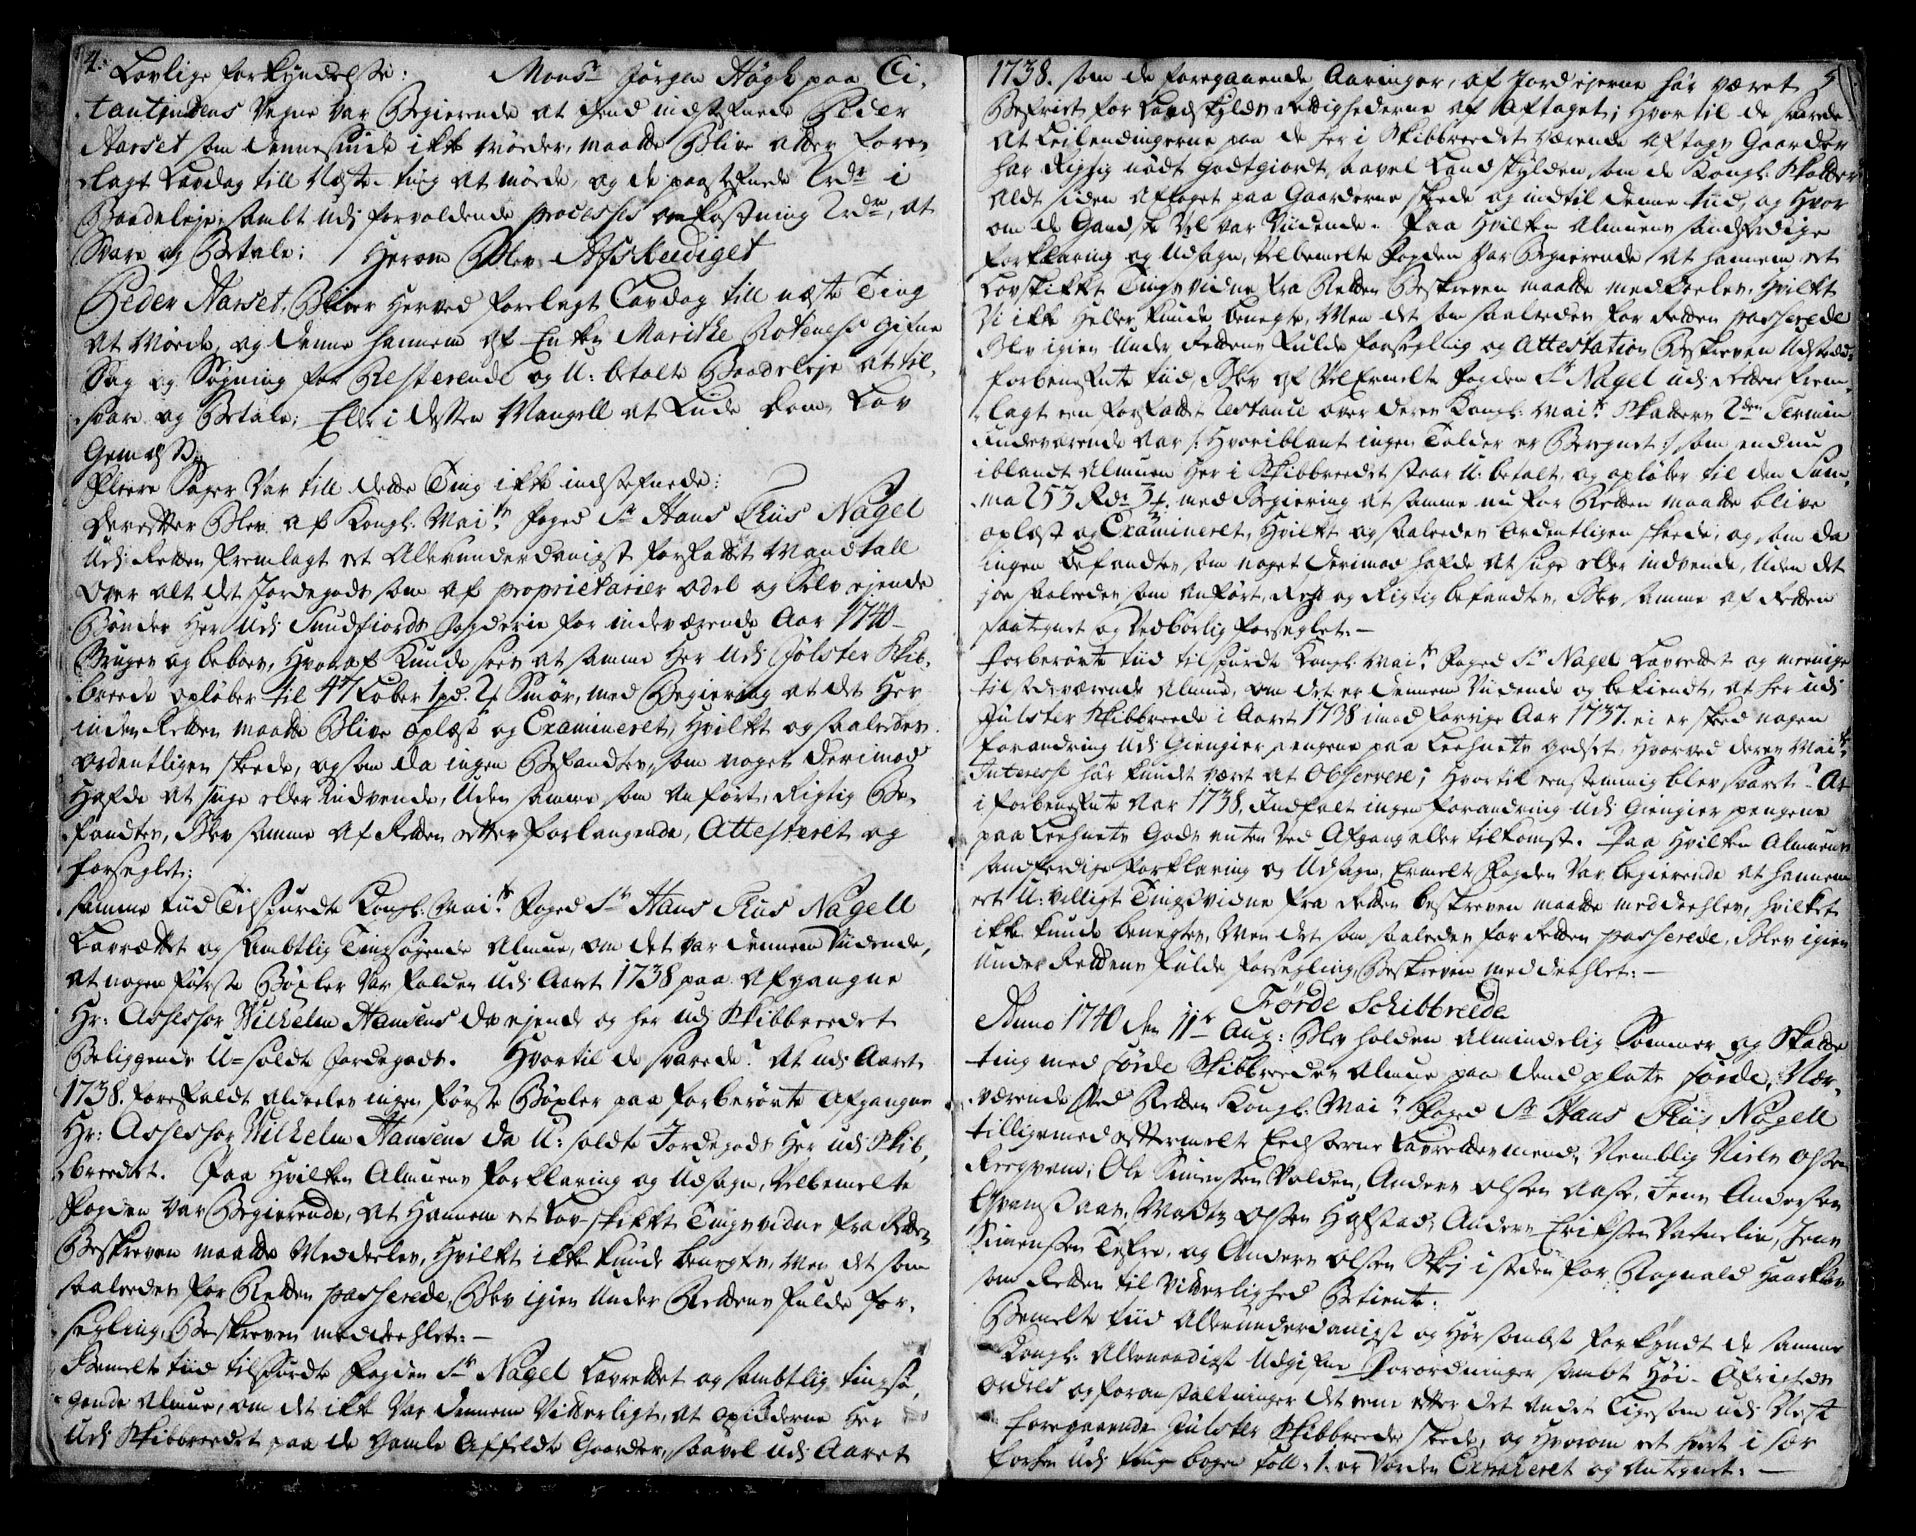 4.
Lovlige forkyndelse: Monsr Jørgen Høgh paa Ci-
tantindens Vegne var Begierende at dend indstefnede Peder
Aarset som denne sinde ikke Møder, maatte Blive atter fore-
lagt Lavdag till Næste ting at møde, og de paastefnede 2rdr i
Baadeleje, sambt udj forvoldende processes omkostning 2rdr, at
Svare og Betale: Herom Blev Afskeediget
Peder Aarset, Bliver Herved forelagt Lavdag till næste Ting
At Møde, og denne hannem af Enken Marithe gifne
Sag og Søgning for Resterende og U: betalte Baadeleje at til-
svare og Betale; Eller i dessen Mangell at Lide Dom, Lov
Gemæs
Fleere Sager Var till dette Ting ikke indstefnede:
Derefter Blev af Kongl: Mai:ts foged Sr Hans Thiis Nagel
Udj Retten fremlagt et Allerunderdanigst forfattet Mandtall
Over alt det Jordegods som af proprietarier odel og Selv ejende
Bønder Her Udj Sundfiords fogderie for indeværende Aar 1740
Bruges og beboes, Hvoraf Kunde sees at samme Her Udj Jølster Skib-
breede opløber til 47 Løber 1pd. 2 Smør, med Begiering at det Her
inden Retten maatte Blive oplæst og Examineret, Hvilket og saaledes
ordentligen skeede, og som da ingen Befandtes, som noget derimod
Hafde at sige eller Indvende, Uden samme som Anført, Rigtig Be-
fandtes, Blev samme af Retten efter forlangende, Attesteret og
forseglet:
Samme tiid Tilspurdte Kongl: Mai:ts foged Sr Hans Thiis Nagell
Laurettet og sambtlig Tingsøgende Almue, om det var dennem Vidende,
At nogen første Bøxler Var falden Udj Aaret 1738 paa Afgangne
Hr: Assessor Wilhelm Hansens da ejende og her udj Skibbreedet
Beliggende U=soldt Jordegods. Hvortil de svarede: At udj Aaret
1738. forefaldt Aldeeles ingen første Bøxler paa forberørte Afgangne
Hr: Assessor Wilhelm Hansens da U: soldte Jordegods Her udj Skib-
breedet. Paa Hvilken Almuens forklaring og Udsagn, Velbemelte
Fogden Var Begierende, At Hannem et Lov-skikket Tingsvidne fra Retten
Beskreven maatte Meddeeles, Hvilket ikke Kunde benegtes, Men det som
saaledes for Retten passerede, Blev igien Under Rettens fulde for-
segling, Beskreven meddeehlet:—
Bemelte tiid tilspurdte fogden Sr Nagel Laurettet og sambtlig tingsø-
gende Almue, om det ikke Var dennem Vitterligt, at opsidderne Her
Udj Skibbreedet paa de Gamle Affeldte Gaarder, saavel Udj Aaret
5
1738. som de foregaaende Aaringer, af Jord ejerne har været
Befriet for Landskylds Rettighederne af Aftaget; Hvortil de svarede
At Leilendingerne paa de her i Skibbreedet Værende Aftags Gaarder
har Rigtig nødt Godtgiordt, saavel Landskylden, som de Kongl: Skatter
Aldt siden Aftaget paa Gaarderne skeede og indtil denne tiid, og Hvor
om de Gandske Vel var Viidende. Paa Hvilken Almuens sandferdige
forklaring og Udsagn, Velbemelte Fogden Var Begierende At hannem et
Lovskikket Tingsvidne fra Retten Beskreven maatte meddeeles, Hvilket
Vi ikke Heller kunde benegte, Men det som saaledes for Retten passerede
Blev igien Under Rettens fulde forsegling og Attestation Beskreven Udstædt.
Forbenefnte tiid, Blev af Velermelte fogden Sr Nagel udj Retten frem-
lagt een forfattet Restance over deres Kongl: Mai:ts Skatters 2den Termin
Indeværende Aar /: Hvoriblant ingen Tolder er Beregnet :/ som endnu
iblandt Almuen Her i Skibbreedet staar U: betalt, og opløber til den Sum-
ma 253 Rdr 3 med Begiering at samme nu for Retten maatte blive
oplæst og Examineret, Hvilket og saaledes Ordentligen skeede, og som da
ingen befandtes, som noget Derimod hafde at sige eller indvende, Uden det
jo saaledes som Anført, Rest og Rigtig befandtes, Blev samme af Retten
paategnet og Vedbørlig forseglet:—
Forberørte tiid tilspurdte Kongl: Mai:ts foged Sr Nagel Laurettet og meenige
tilstedeværende Almue, om det er dennem Viidende og bekiendt, at her udj
Jølster Skibbreede i Aaret 1738 imod forrige Aar 1737. ei er skeed nogen
forandring udj Giengierpengene paa Leehnets godset, Hvorved deres Mai:ts
Interesse har kundt været at Observere; Hvortil eenstemmig blev svaret: At
i forbenefnte Aar 1738, Indfalt ingen forandring udj Giengier pengene
paa Leehnets Gods enten Ved Afgang eller tilkomst. Paa Hvilken Almuens
sandferdige forklaring og Udsagn, Ermelte Fogden Var begierende at hannem
et U: villigt Tingsvidne fra Retten beskreven maatte meddeehles, hvilket
ikke kunde benegtes, Men det som saaledes for Retten passerede, Blev igien
Under Rettens fulde forsegling, Beskreven meddeehlet:—
Førde Schibbreede
Anno 1740 den 11te Aug: Blev holden Almindelig Sommer og Skatte
ting med Førde Skibbreedes Almue paa dend platz Førde, Nær-
værende Ved Retten Kongl: Mai:ts Foged Sr Hans Thiis Nagell
tilligemed eftermelte Eedsorne Laurettesmend, Nemblig Niels Olsen
Reegvam, Ole Simensen Volden, Anders Olsen Aase, Jens Andersen
Qvamsdaas, Mads Olsen Hafstad, Anders Eriksen Vatnelie, Jens
Simensen Tefre, og Anders Olsen Skej isteden for Ragnald
som Retten til Vitterlighed Betiente.
Bemelte tiid Allerunderdanigst og Hørsombst forkyndt de samme
Kongl: Allernaadigst Udgifne Forordninger sambt Høi-Øfrigheds
Ordres og foranstaltninger det eene efter det Andet Ligesom udj Nest
foregaaende Jølster Skibbreede skeede, og Hvorom et hvert i sær
forhen Udj ting bogen foll: 1. er Vorden Extraheret og Antegnet:—